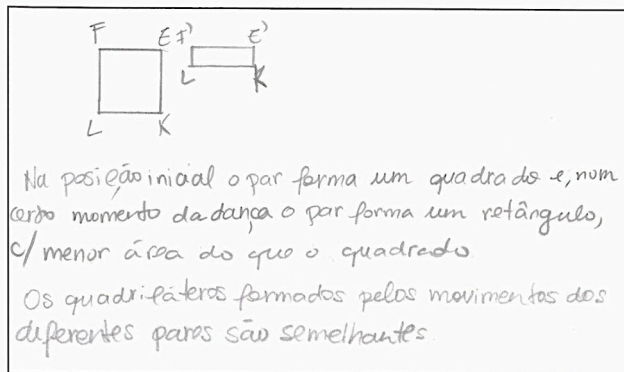 F E F' E'
L K L K
Na posição inicial o par forma um quadrado e, num
certo momento da dança o par forma um retângulo,
c/ menor área do que o quadrado
Os quadriláteros formados pelos movimentos dos
diferentes pares são semelhantes.